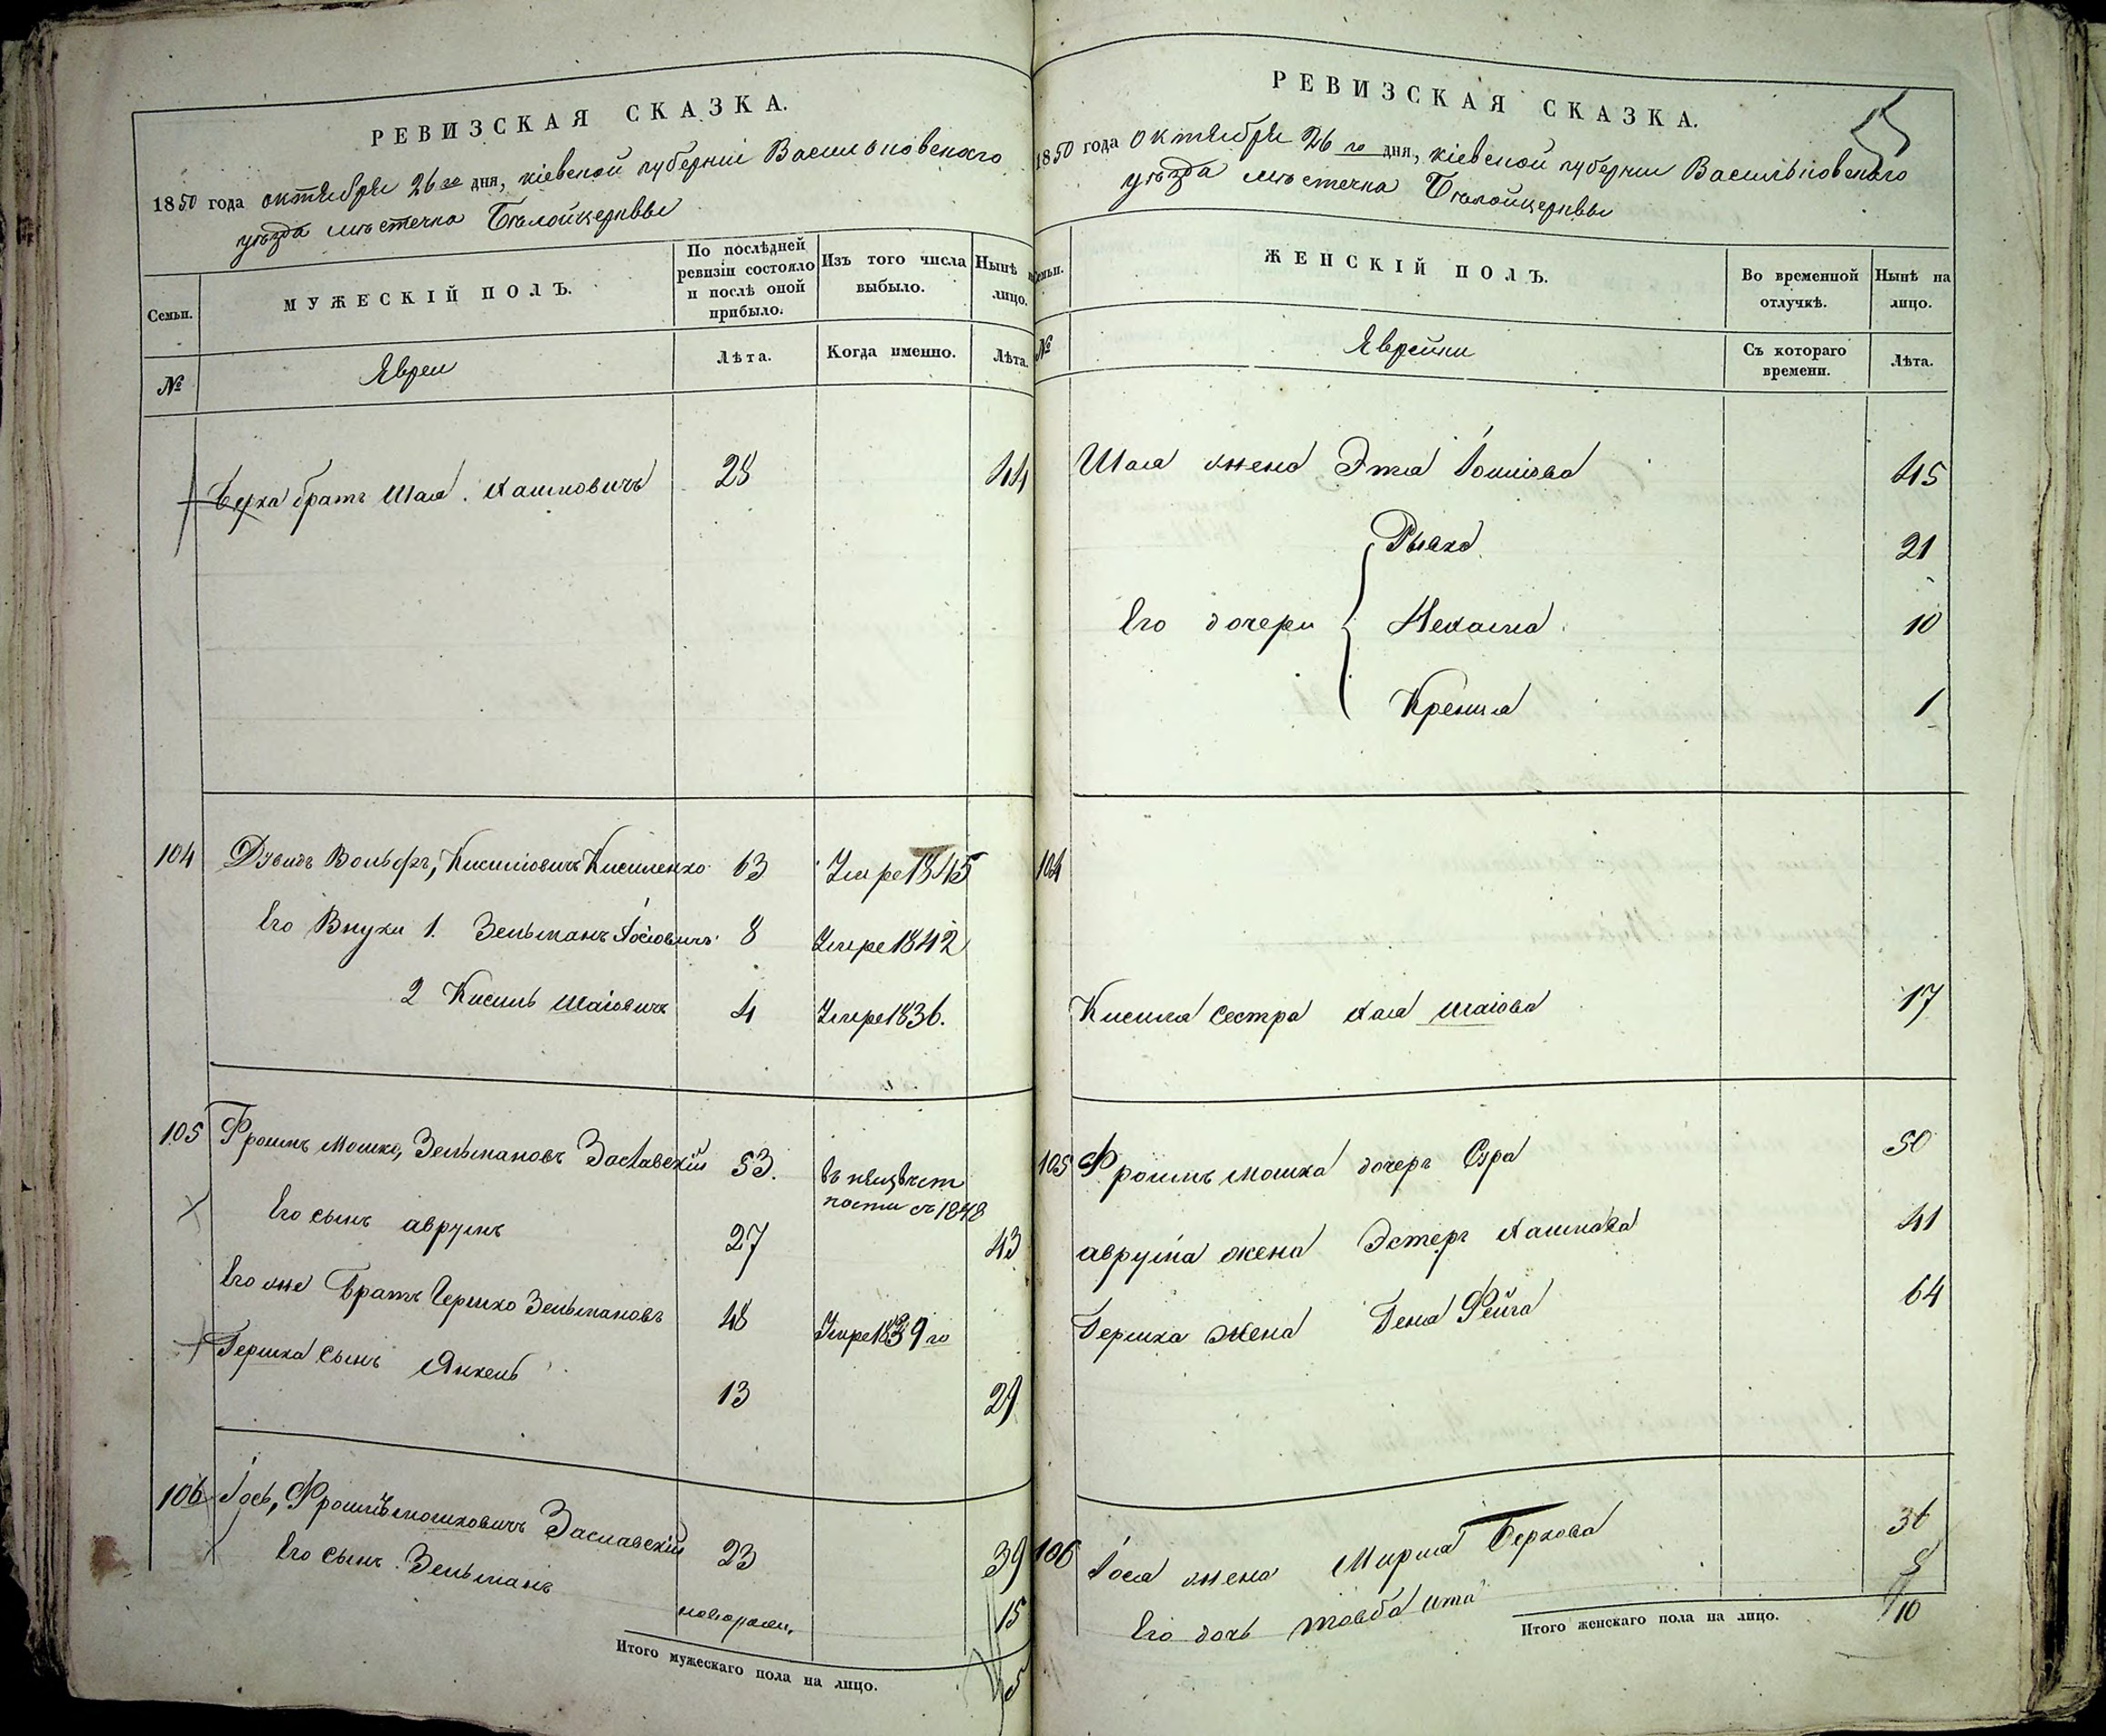 РЕВИЗСКАЯ СКАЗКА.
1850 года октября 26го дня, кіевской губерніи Васильковскаго
уѣзда мѣстечка Бѣлойцеркви
Семьи.
МУЖЕСКІЙ ПОЛЪ.
По послѣдней ревизіи состояло и послѣ оной прибыло.
Изъ того числа выбыло.
Нынѣ на лицо.
№
Евреи
Лѣта.
Когда именно.
Лѣта.
Берка братъ Шая Хаимовичъ 28 44
104 Дувидъ Вольфъ, Кисилiовичъ Кисиленко 63 Умре 1845
Его Внуки 1. Зельманъ Іосiовичъ 8 Умре 1842
2 Кисиль Шаiовичъ 4 Умре 1836.
105 Фроимъ Мошко, Зельмановъ Заславскій 53. въ неизвѣст
ности съ 1848
Его сынъ аврумъ 27 43
Его же Братъ Гершко Зельмановъ 48 Умре 1839 го
Гершка сынъ Янкель 13 29
106 Іось, Фроимъмошковичъ Заславскій 23 39
Его сынъ Зельманъ новорожд. 15
Итого мужескаго пола на лицо. 5
РЕВИЗСКАЯ СКАЗКА.
1850 года октября 26 го дня, кіевской губерніи Васильковскаго
уѣзда мѣстечка Бѣлойцеркви
Семьи.
ЖЕНСКІЙ ПОЛЪ.
Во временной отлучкѣ.
Нынѣ на лицо.
№
Еврейки
Съ котораго времени.
Лѣта.
Шая жена Эта 45
Рывка 21
Его дочери Нехама 10
Крейна 1
104
Кисиля сестра Хая Шаiова 17
105 Фроимъ мошка дочеръ Сура 50
аврума жена Эстеръ Хаимова 41
Гершка жена Геня Фейга 64
106 Іося жена Мирля Беркова 36
Его дочь товба ита 8
Итого женскаго пола на лицо. 10